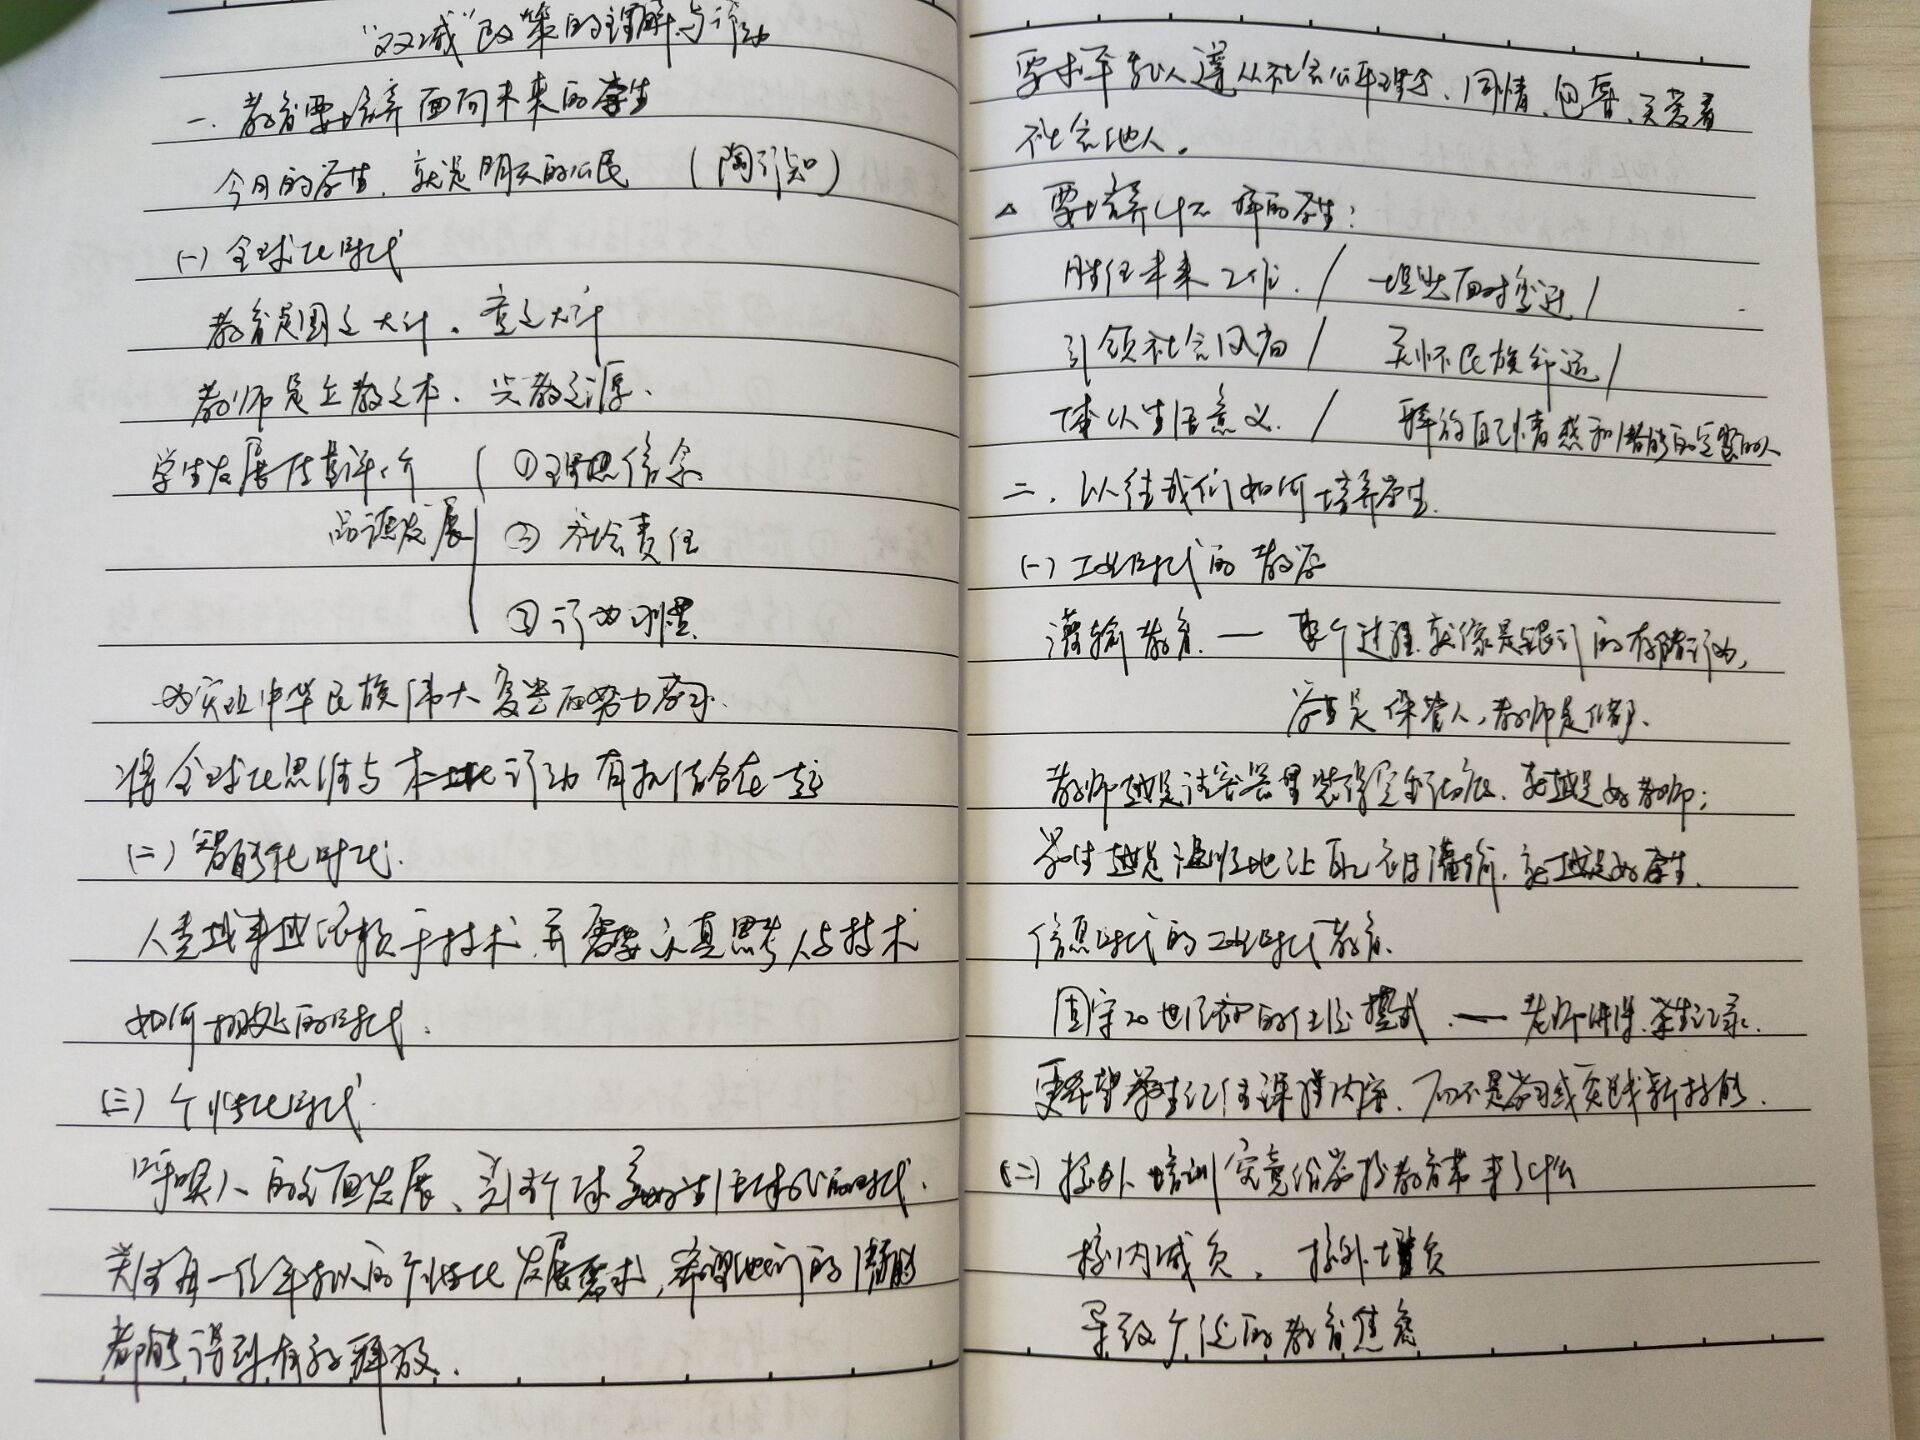 “双减”政策的理解与行动
一、教育要培养面向未来的学生
今日的学生，就是明天的公民 （陶行知）
（一）全球化时代
教育是国之大计、党之大计
教师是立教之本、兴教之源、
学生发展质量评价 ①理想信念
品德发展 ②社会责任
③行为习惯
为实现中华民族伟大复兴而努力奋斗
将全球化思维与本土化行动有机结合在一起
（二）智能化时代.
人类越来越依赖于技术，并需要认真思考人与技术
如何相处的时代.
（三）个性化时代.
呼唤人的全面发展、关注个体美好生活体验的时代.
关注每一位年轻人的个性化发展需求，希望他们的潜能
都能得到有效释放.
要求年轻人遵从社会公平理念、同情、包容、关爱着
社会他人.
△ 要培养什么样的学生：
胜任未来工作. / 坦然面对命运 /
引领社会风尚 / 关怀民族命运 /
体认生活意义. / 释放自己情感和潜能的完整的人
二、以往我们如何培养学生.
（一）工业时代的教学
灌输教育. — 整个过程就像是银行的存储行为，
学生是保管人，教师是储户.
教师越是让容器里装得完全彻底，就越是好教师；
学生越是温顺地让自己被灌输，就越是好学生.
信息时代的工业时代教育.
固守20世纪初的住校模式. — 老师讲课、学生记录.
更希望学生记住课程内容、而不是学习或实践新技能.
（二）校外培训究竟给学校教育带来了什么
校内减负、校外增负
导致广泛的教育焦虑